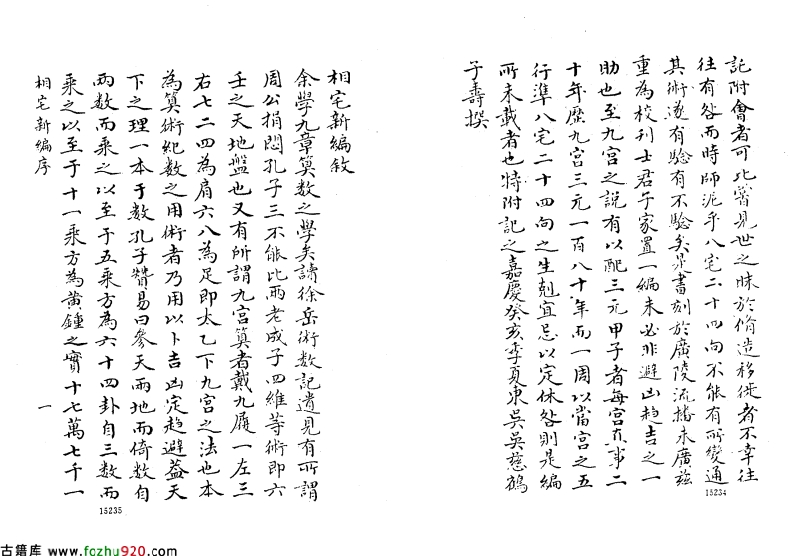 託附會者可比嘗見世之昧於脩造移徙者不幸往
往有咎而時師泥乎八宅二十四向不能有所變通
其術遂有驗有不驗矣是書刻於廣陵流播未廣茲
重為校刊士君子家置一編未必非避凶趨吉之一
助也至九宮之說有以配三元甲子者每宮直事二
十年歷九宮三元一百八十年而一周以當宮之五
行準八宅二十四向之生剋宜忌以定休咎則是編
所未載者也特附記之嘉慶癸亥季夏東吳吳慈鶴
子壽撰
15234
相宅新編敘
余學九章算數之學矣讀徐岳術數記遺見有所謂
周公捐悶孔子三不能比兩老成子四維等術即六
壬之天地盤也又有所謂九宮算者戴九履一左三
右七二四為肩六八為足即太乙下九宮之法也本
為算術紀數之用術者乃用以卜吉凶定趨避蓋天
下之理一本于數孔子贊易曰參天兩地而倚數自
兩數而乘之以至于五乘方為六十四卦自三數而
乘之以至于十一乘方為黃鍾之實十七萬七千一
相宅新編序
一
15235
古籍库 www.fozhu920.com